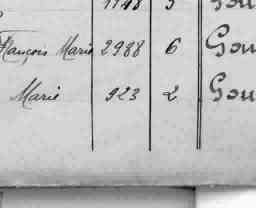 1148 5 Gou
François Marie 2988 6 Gou
Marie 923 2 Gou